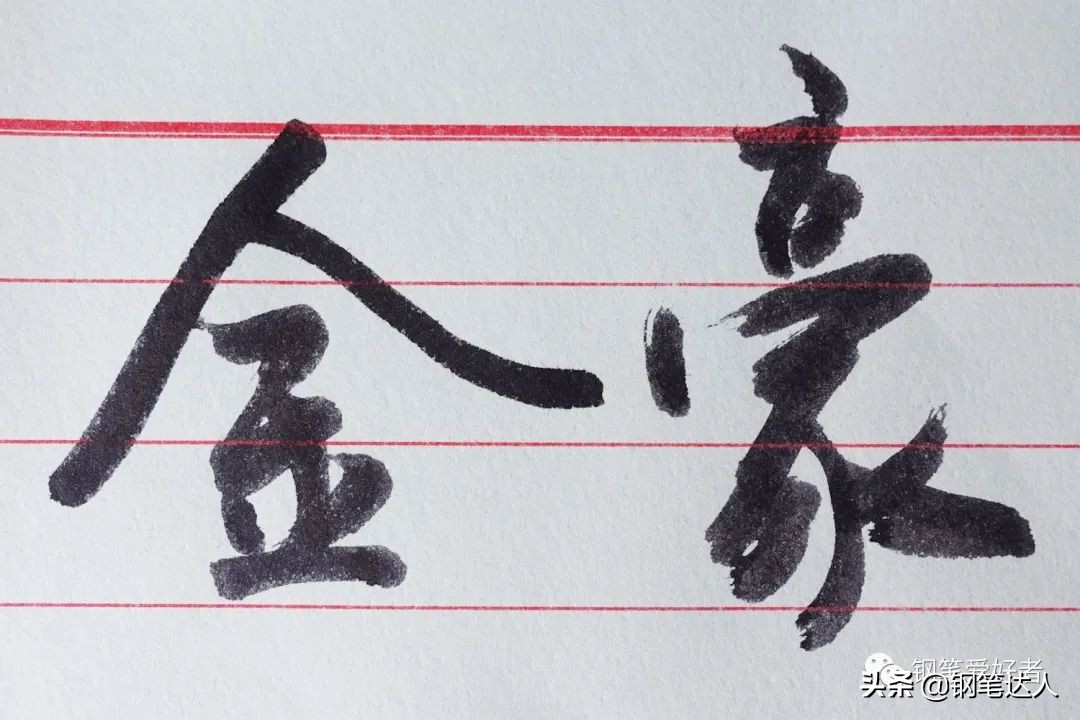 金豪
钢笔爱好者
头条 @钢笔达人